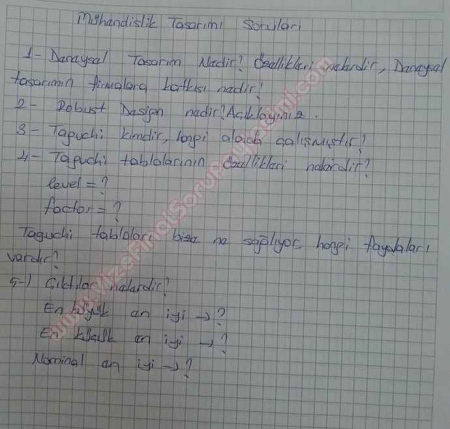 Mühendislik Tasarımı Soruları
1- Danaysal Tasarım Nedir? Özellikleri nelerdir, Danaysal
tasarımın firmalara katkısı nedir?
2- Robust Design nedir? Açıklayınız.
3- Taguchi kimdir, hangi alanda çalışmıştır?
4- Taguchi tablolarının özellikleri nelerdir?
level = ?
factor = ?
Taguchi tabloları bize ne sağlıyor, hangi faydaları
vardır?
5-) Çıktılar nelerdir?
En büyük en iyi → ?
En küçük en iyi → ?
Nominal en iyi → ?